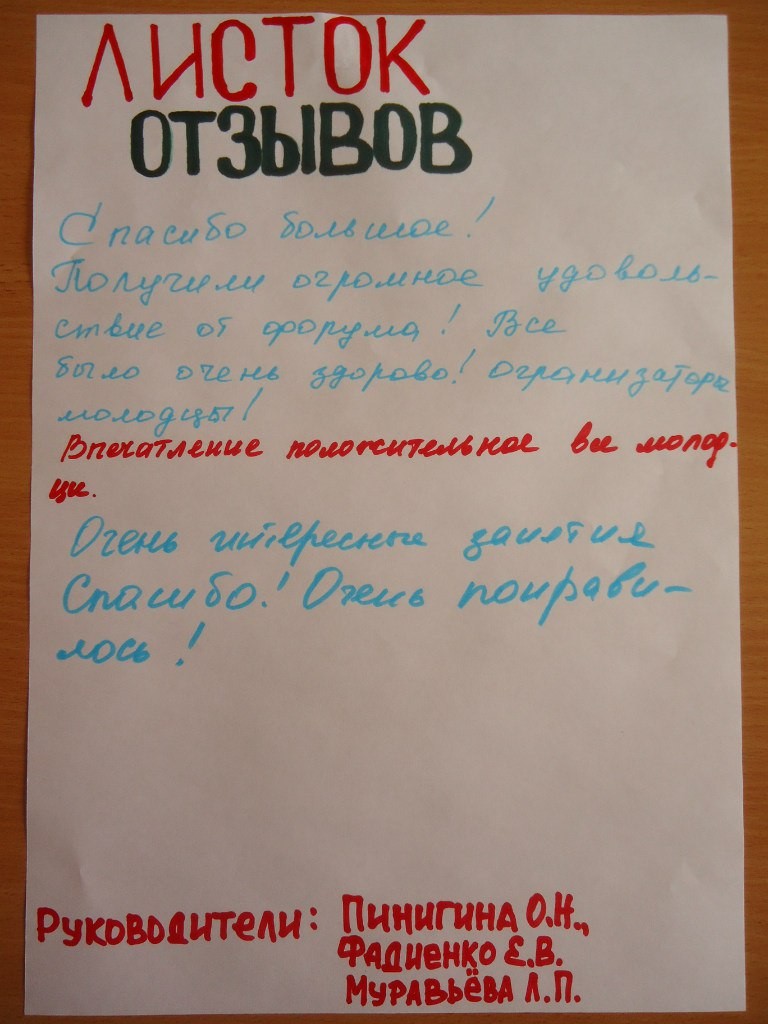 ЛИСТОК
ОТЗЫВОВ
Спасибо большое!
Получили огромное удоволь-
ствие от форума! Все
было очень здорово! огранизаторы
молодцы!
Впечатление положительное все молод-
ци.
Очень интересные занятия
Спасибо! Очень понрави-
лось!
Руководители: Пинигина О.Н.,
Фадиенко Е.В.
Муравьёва Л.П.